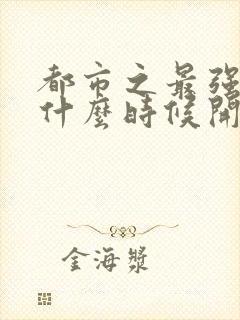 都市之最强
什麼時候開
金海漿